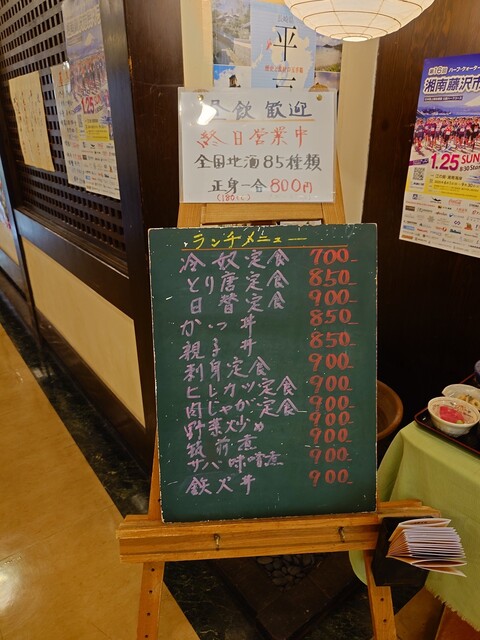 平
昼飲歓迎
終日営業中
全国地酒85種類
正身一合800円
(180cc)
ランチメニュー
冷奴定食 700-
とり唐定食 850-
日替定食 900-
かつ丼 850-
親子丼 850-
刺身定食 900-
ヒレカツ定食 900-
肉じゃが定食 900-
野菜炒め 900-
筑前煮 900-
サバ味噌煮 900-
鉄火丼 900-
第16回
ハーフ・クォーター
湘南藤沢市
1.25 SUN
8:50 Start
1.25